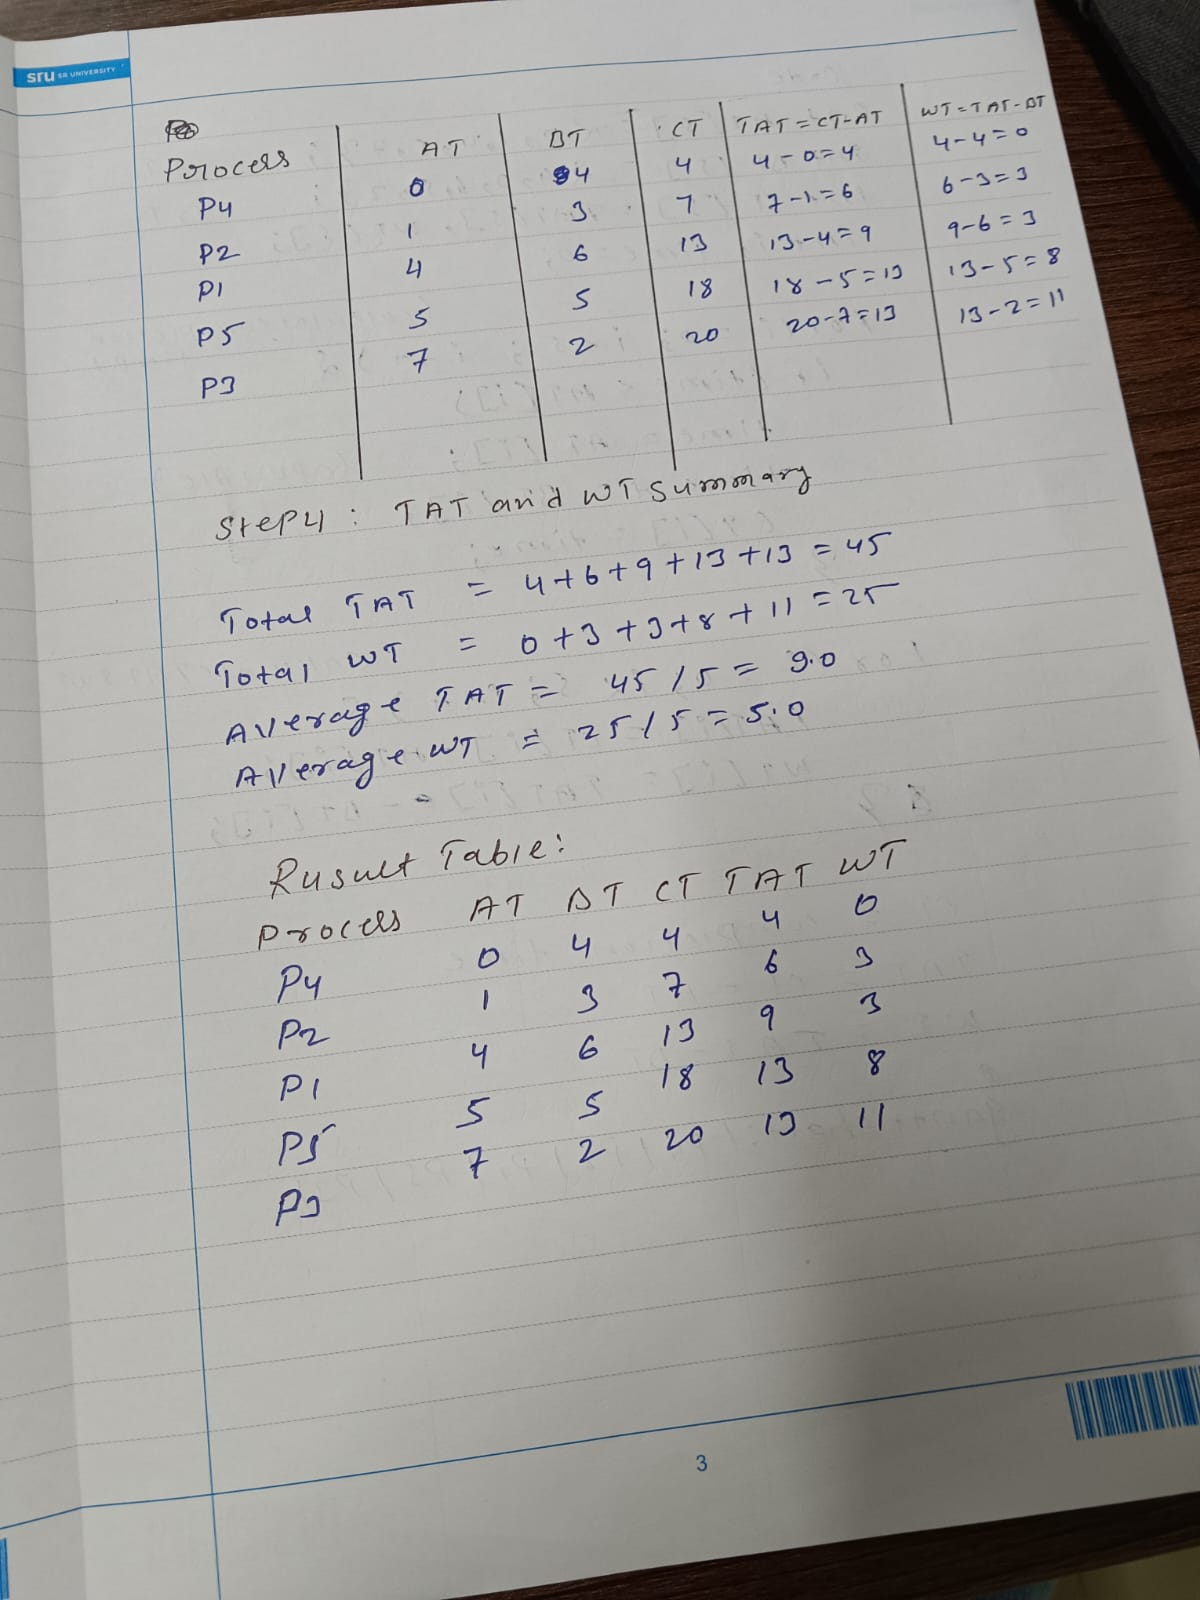 sru SR UNIVERSITY
Process AT BT CT TAT=CT-AT WT=TAT-BT
P4 0 4 4 4-0=4 4-4=0
P2 1 3 7 7-1=6 6-3=3
P1 4 6 13 13-4=9 9-6=3
P5 5 5 18 18-5=13 13-5=8
P3 7 2 20 20-7=13 13-2=11
Step4 : TAT and WT Summary
Total TAT = 4+6+9+13+13=45
Total WT = 0+3+3+8+11=25
Average TAT = 45/5=9.0
Average WT = 25/5=5.0
Rusult Table:
Process AT BT CT TAT WT
P4 0 4 4 4 0
P2 1 3 7 6 3
P1 4 6 13 9 3
P5 5 5 18 13 8
P3 7 2 20 13 11
3